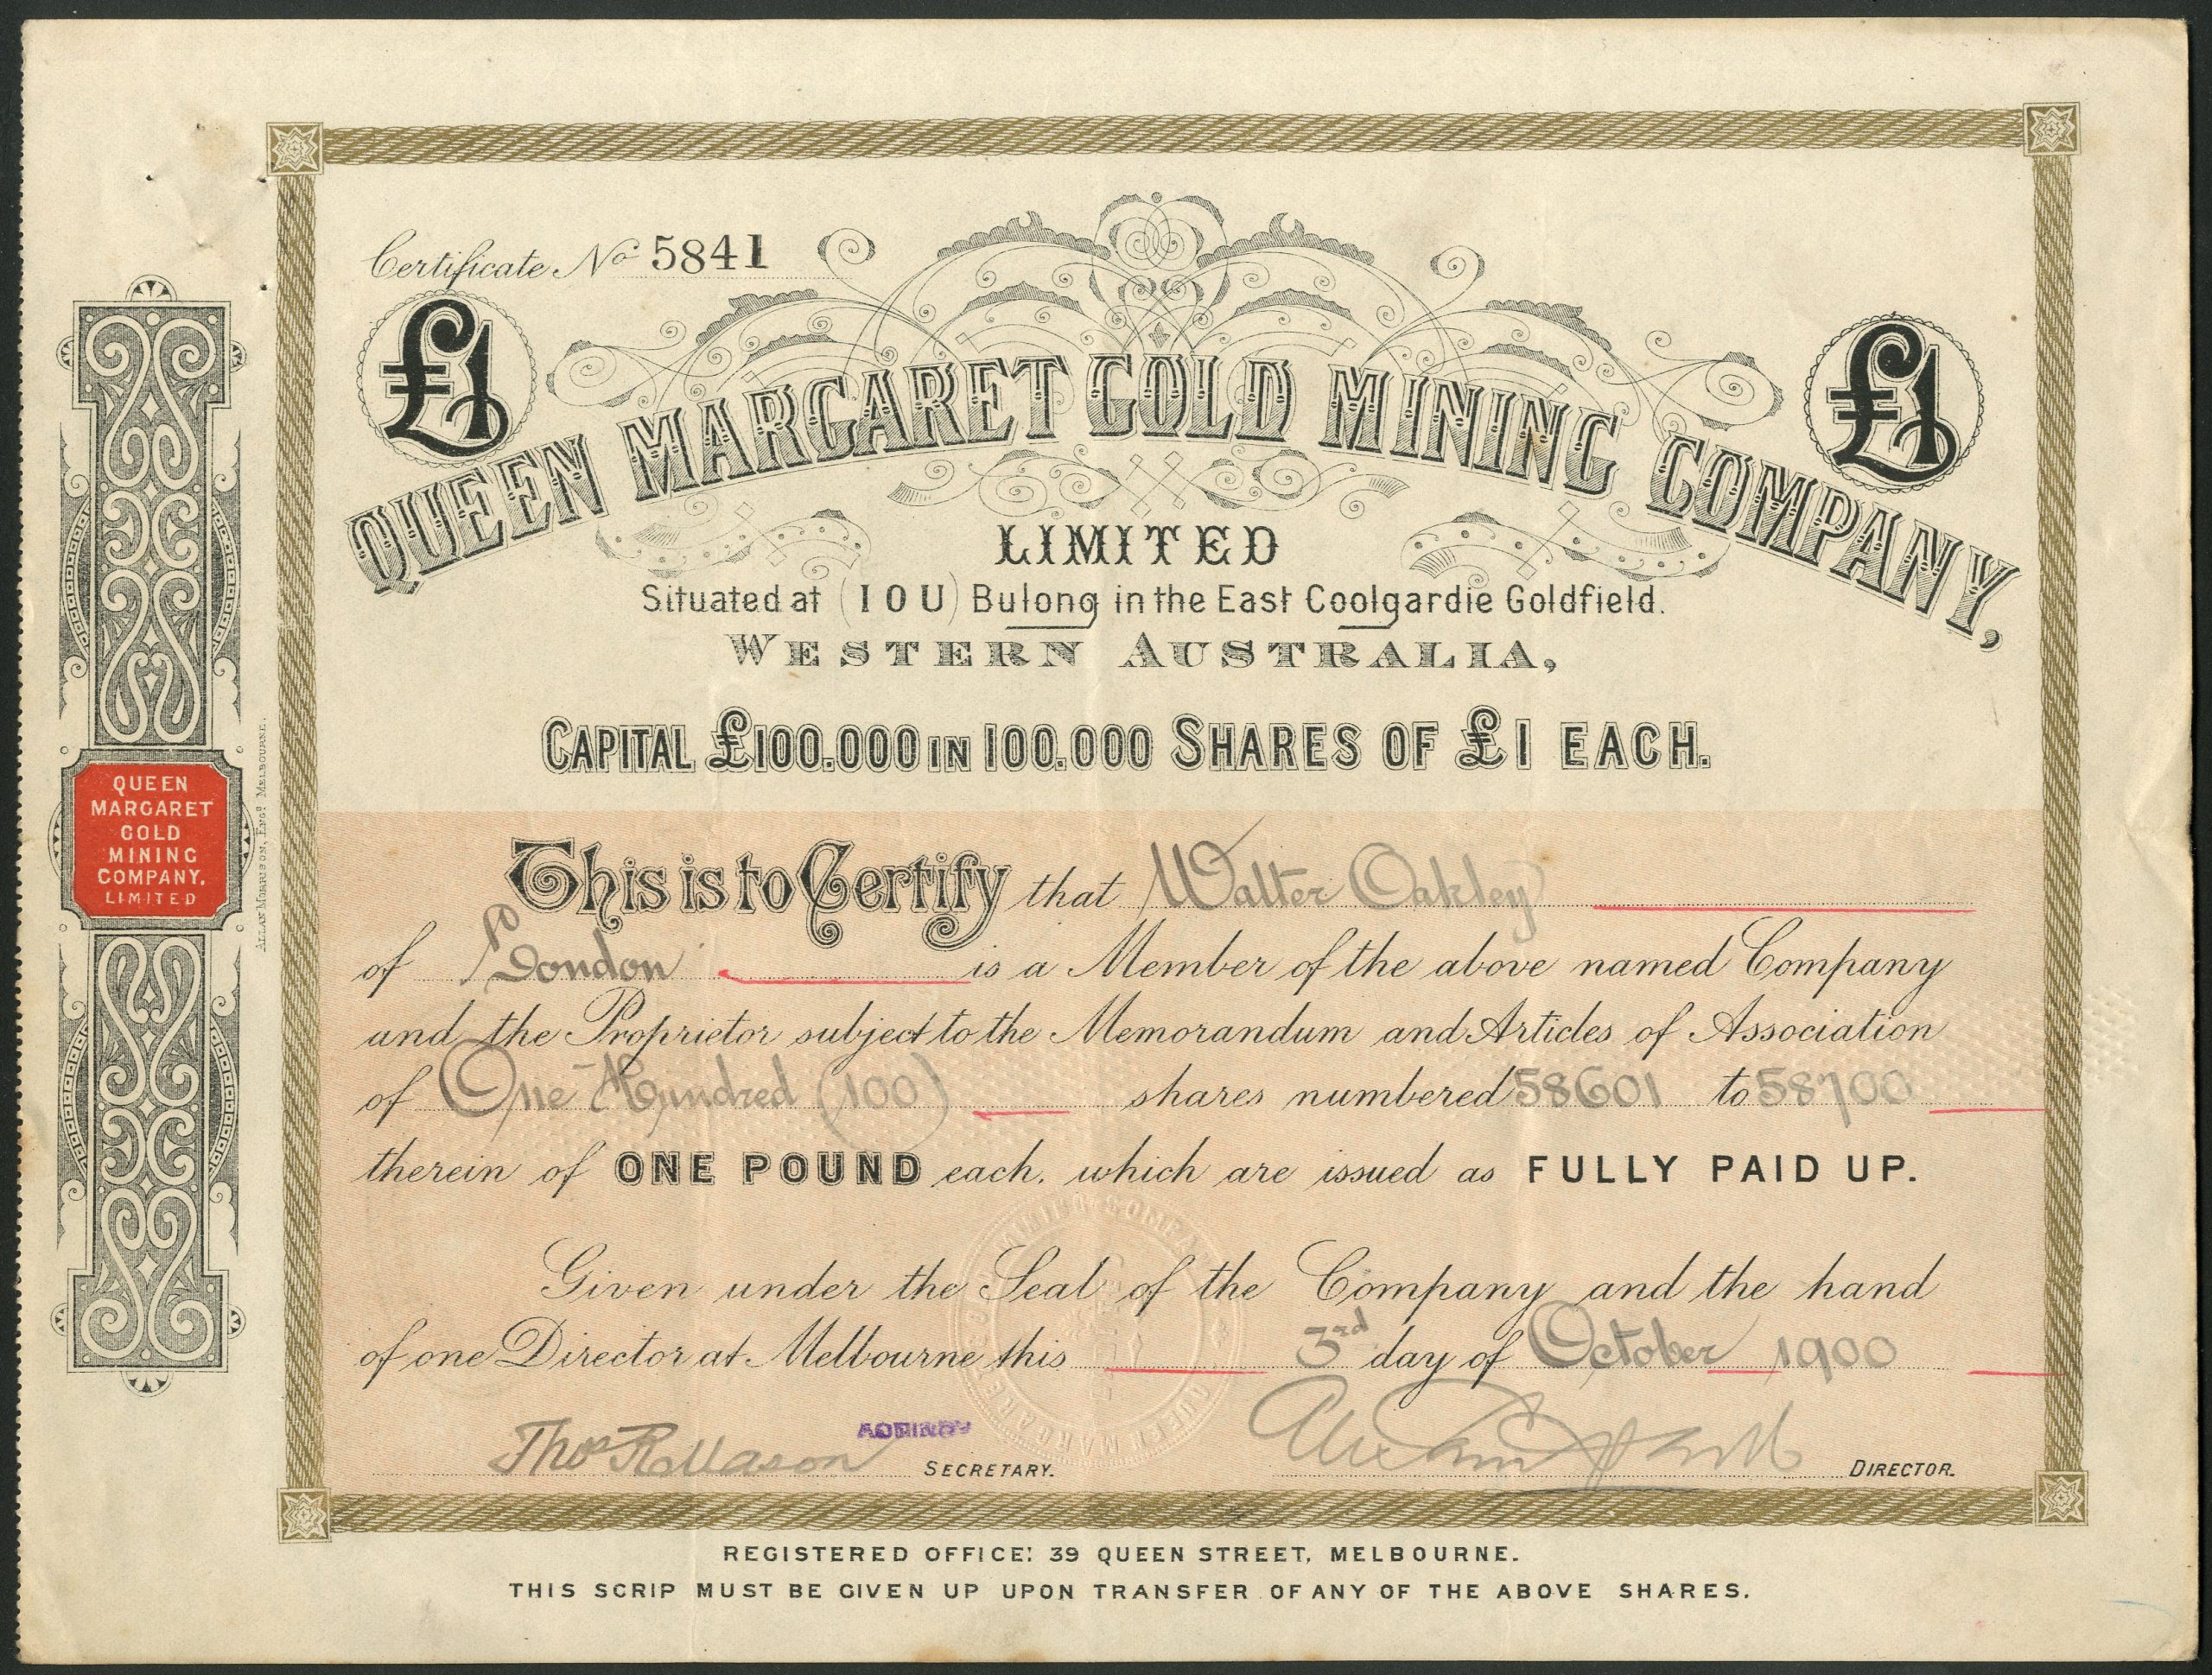 Certificate No 5841
£1
£1
QUEEN MARGARET GOLD MINING COMPANY,
LIMITED
Situated at (IOU) Bulong in the East Coolgardie Goldfield.
WESTERN AUSTRALIA,
CAPITAL £100.000 IN 100.000 SHARES OF £1 EACH.
QUEEN
MARGARET
GOLD
MINING
COMPANY,
LIMITED
ALLAN MORRISON, ENGR MELBOURNE.
This is to Certify that Walter Oakley
of London is a Member of the above named Company
and the Proprietor subject to the Memorandum and Articles of Association
of One Hundred (100) shares numbered 58601 to 58700
therein of ONE POUND each, which are issued as FULLY PAID UP.
Given under the Seal of the Company and the hand
of one Director at Melbourne this 3rd day of October 1900
Thos Rollason SECRETARY.
DIRECTOR.
REGISTERED OFFICE: 39 QUEEN STREET, MELBOURNE.
THIS SCRIP MUST BE GIVEN UP UPON TRANSFER OF ANY OF THE ABOVE SHARES.